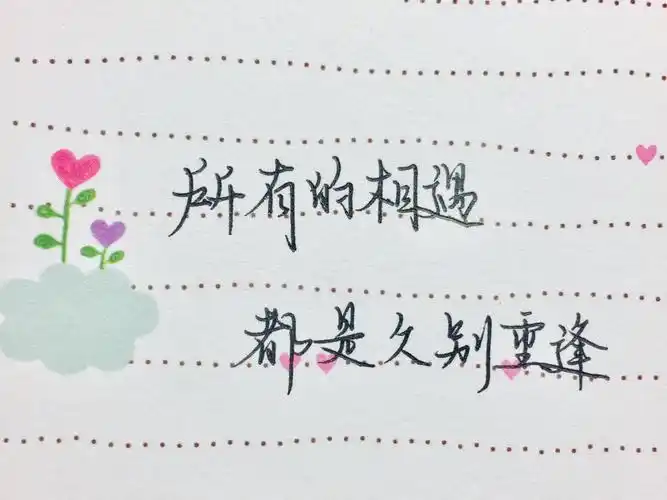 所有的相遇
都是久别重逢